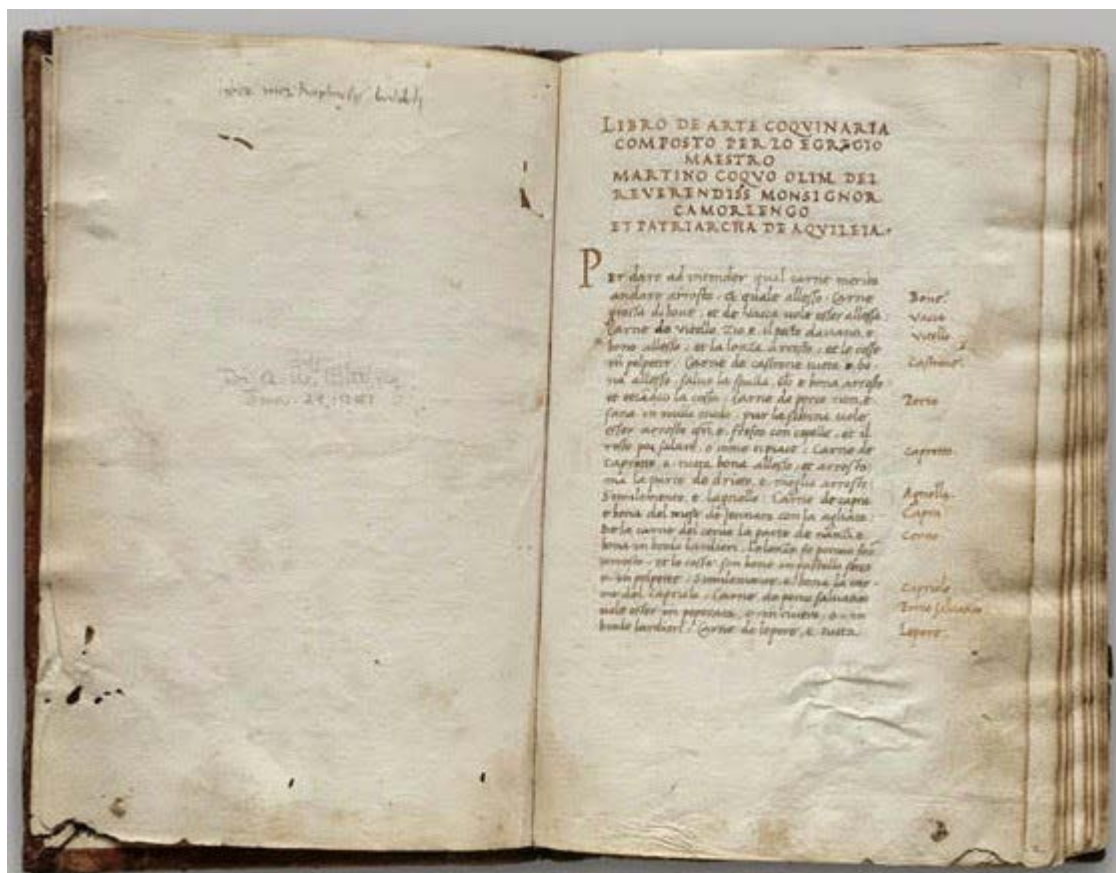 LIBRO DE ARTE COQVINARIA
COMPOSTO PER LO EGREGIO
MAESTRO
MARTINO COQVO OLIM DEL
REVERENDISS MONSIGNOR
CAMORLENGO
ET PATRIARCHA DE AQVILEIA.
Per dare ad intender qual carne merita
andare arrosto, et quale allesso. Carne
grossa di bove, et de vacca vole esser allessa.
Carne de vitello, zio e, il pecto davanti e
bono allesso, et la lonza arrosto, et le cosse
in polpette. Carne de castrone tutta e bo
na allesso, salvo la spalla, che e bona arrosto
et etiandio la cossa. Carne de porco non e
sana in nullo modo, pur la schina vole
esser arrosto fresco con cipolle, et il
resto poi salare, o come ti piace. Carne de
capretto e tutta bona allesso, et arrosto
ma la parte de drieto e meglio arrosto.
Similemente e lagnello. Carne de capra
e bona del mese de Jennaro con la agliata.
De la carne del cervo la parte de nanzi e
bona in brodo lardieri, le lonze se
arrosto, et le cosse son bone in pastello secco
o in polpette. Similemente e bona la car
ne del capriolo. Carne de porco salvatico
vole esser in peperata, o in civero, o in
brodo lardieri. Carne de lepore e tutta
Bove.
Vacca
Vitello
Castrone
Porco
Capretto
Agnello.
Capra
Cervo
Capriolo
Porco salvatico
Lepore